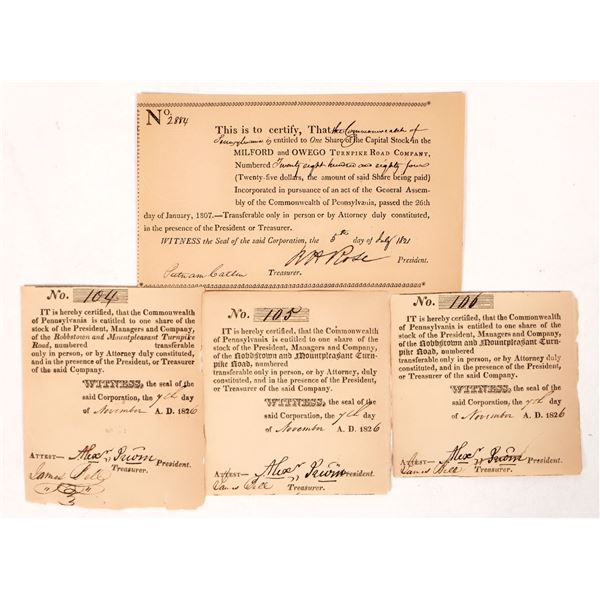 No. 2884
This is to certify, That the Commonwealth of
Pennsylvania is entitled to One Share of the Capital Stock in the
MILFORD and OWEGO TURNPIKE ROAD COMPANY,
Numbered Twenty eight hundred and eighty four
(Twenty-five dollars, the amount of said Share being paid)
Incorporated in pursuance of an act of the General Assem-
bly of the Commonwealth of Pennsylvania, passed the 26th
day of January, 1807.—Transferable only in person or by Attorney duly constituted,
in the presence of the President or Treasurer.
WITNESS the Seal of the said Corporation, the 5th day of July 1821
Rose President.
Putnam Catlin Treasurer.
No. 104
IT is hereby certified, that the Commonwealth
of Pennsylvania is entitled to one share of the
stock of the President, Managers and Company,
of the Robbstown and Mountpleasant Turnpike
Road, numbered transferable
only in person, or by Attorney duly constituted,
and in the presence of the President or Treasurer
of the said Company.
WITNESS, the seal of the
said Corporation, the 7th day
of November A. D. 1826
ATTEST— Alexr. President.
James Bell Treasurer.
No. 105
IT is hereby certified, that the Commonwealth
of Pennsylvania is entitled to one share of the
stock of the President, Managers and Company,
of the Robbstown and Mountpleasant Turn-
pike Road, numbered
transferable only in person, or by Attorney duly
constituted, and in presence of the President
or Treasurer of the said Company.
WITNESS, the seal of the
said Corporation, the 7th day
of November A. D. 1826
ATTEST— Alexr. President.
James Bell Treasurer.
No. 106
IT is hereby certified, that the Commonwealth
of Pennsylvania is entitled to one share of the
stock of the President, Managers and Company,
of the Robbstown and Mountpleasant Turn-
pike Road, numbered
transferable only in person, or by Attorney duly
constituted, and in presence of the President
or Treasurer of the said Company.
WITNESS, the seal of the
said Corporation, the 7th day
of November A. D. 1826
ATTEST— Alexr. President.
James Bell Treasurer.